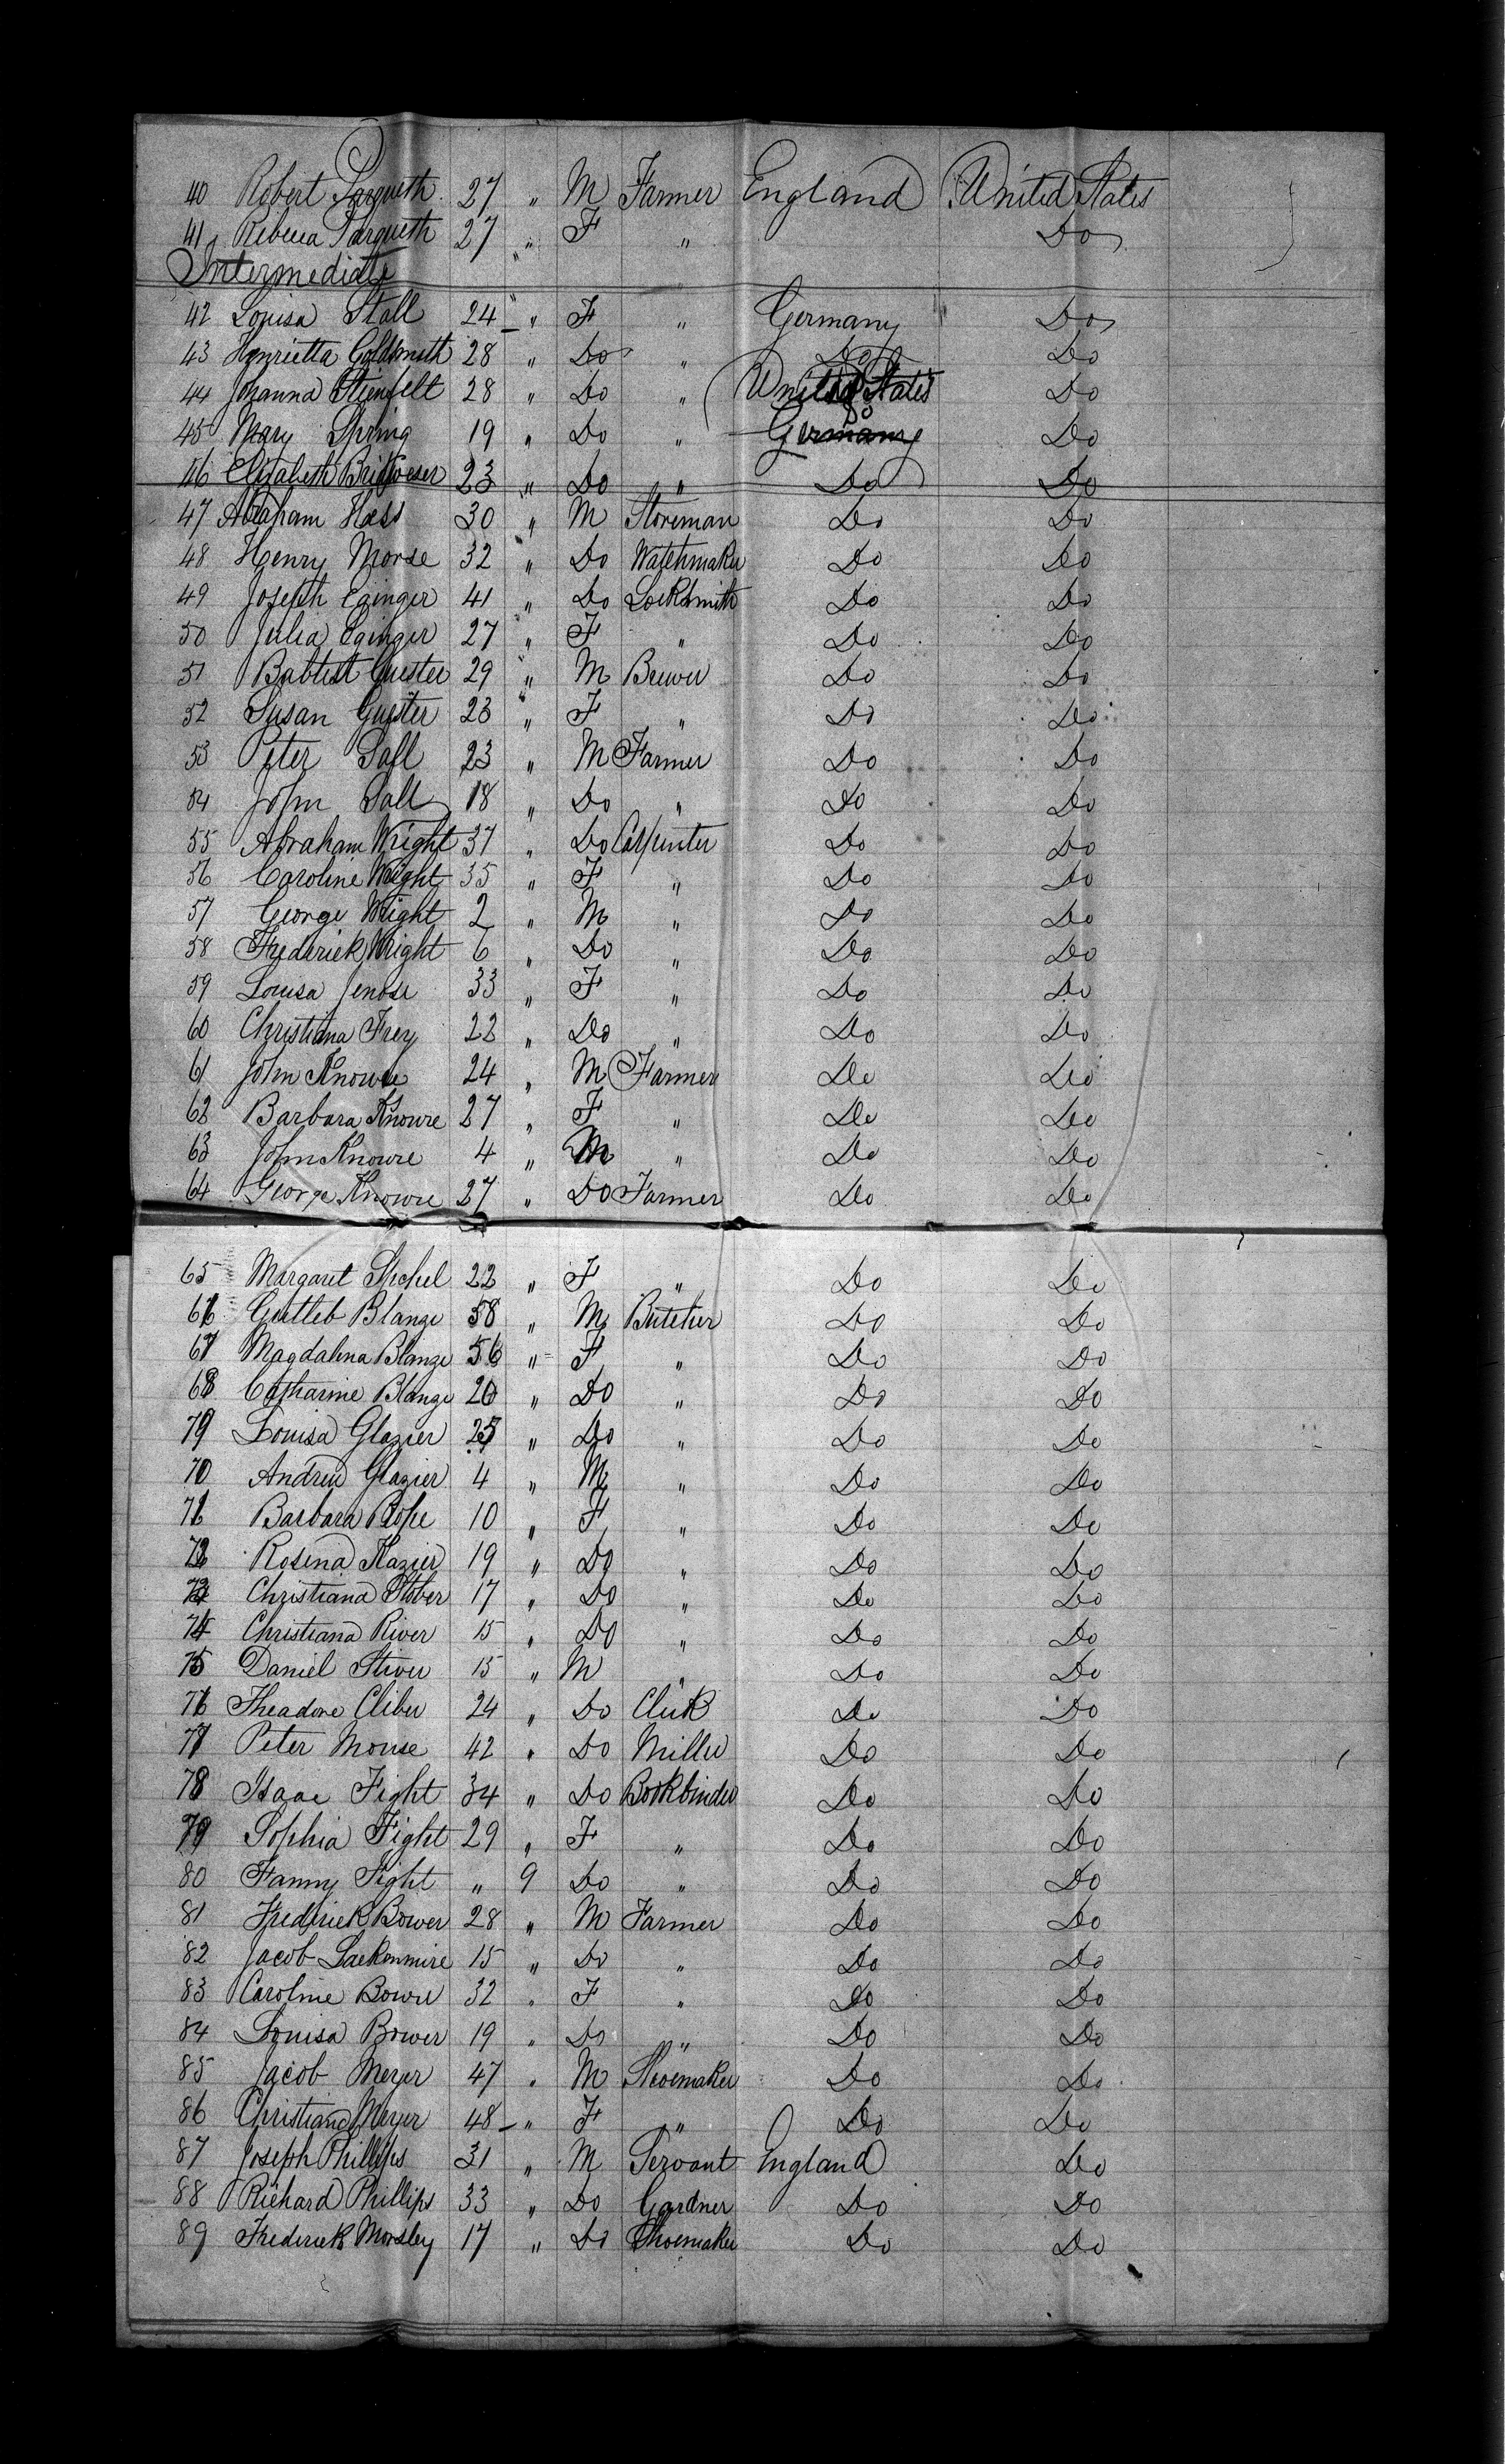 40 Robert Jarqueth 27 " M Farmer England United States
41 Rebecca Jarqueth 27 " F " Do
Intermediate
42 Louisa Stall 24 " F " Germany Do
43 Henrietta Goldsmith 28 " Do " Do Do
44 Johanna Steinfelt 28 " Do " United States Do
45 Mary Spring 19 " Do " Germany Do Do
46 Elizabeth 23 " Do " Do Do
47 Abraham Hess 30 " M Storeman Do Do
48 Henry Morse 32 " Do Watchmaker Do Do
49 Joseph Eginger 41 " Do Locksmith Do Do
50 Julia Eginger 27 " F " Do Do
51 Babtist Guester 29 " M Brewer Do Do
52 Susan Guester 23 " F " Do Do
53 Peter Sall 23 " M Farmer Do Do
54 John Sall 18 " Do " Do Do
55 Abraham Wright 37 " Do Carpenter Do Do
56 Caroline Wright 35 " F " Do Do
57 George Wright 2 " M " Do Do
58 Frederick Wright 6 " Do " Do Do
59 Louisa Jenose 33 " F " Do Do
60 Christiana Frey 22 " Do " Do Do
61 John Knowre 24 " M Farmer Do Do
62 Barbara Knowre 27 " F " Do Do
63 John Knowre 4 " M " Do Do
64 George Knowre 27 " Do Farmer Do Do
65 Margaret Shepel 22 " F " Do Do
66 Gottleb Blanze 58 " M Butcher Do Do
67 Magdalena Blanze 56 " F " Do Do
68 Catharine Blanze 20 " Do " Do Do
79 Louisa Glazier 25 " Do " Do Do
70 Andrew Glazier 4 " M " Do Do
71 Barbara Rope 10 " F " Do Do
72 Rosena Klazier 19 " Do " Do Do
73 Christiana Stober 17 " Do " Do Do
74 Christiana River 15 " Do " Do Do
75 Daniel Stiver 15 " M " Do Do
76 Theadore Cliber 24 " Do Clerk Do Do
77 Peter Mouse 42 " Do Miller Do Do
78 Isaac Fight 34 " Do Bookbinder Do Do
79 Sophia Fight 29 " F " Do Do
80 Fanny Fight " 9 Do " Do Do
81 Frederick Bower 28 " M Farmer Do Do
82 Jacob Lackenmire 15 " Do " Do Do
83 Caroline Bower 32 " F " Do Do
84 Louisa Bower 19 " Do " Do Do
85 Jacob Meyer 47 " M Shoemaker Do Do
86 Christiana Meyer 48 " F " Do Do
87 Joseph Phillips 31 " M Servant England Do
88 Richard Phillips 33 " Do Gardner Do Do
89 Frederick Morsley 17 " Do Shoemaker Do Do